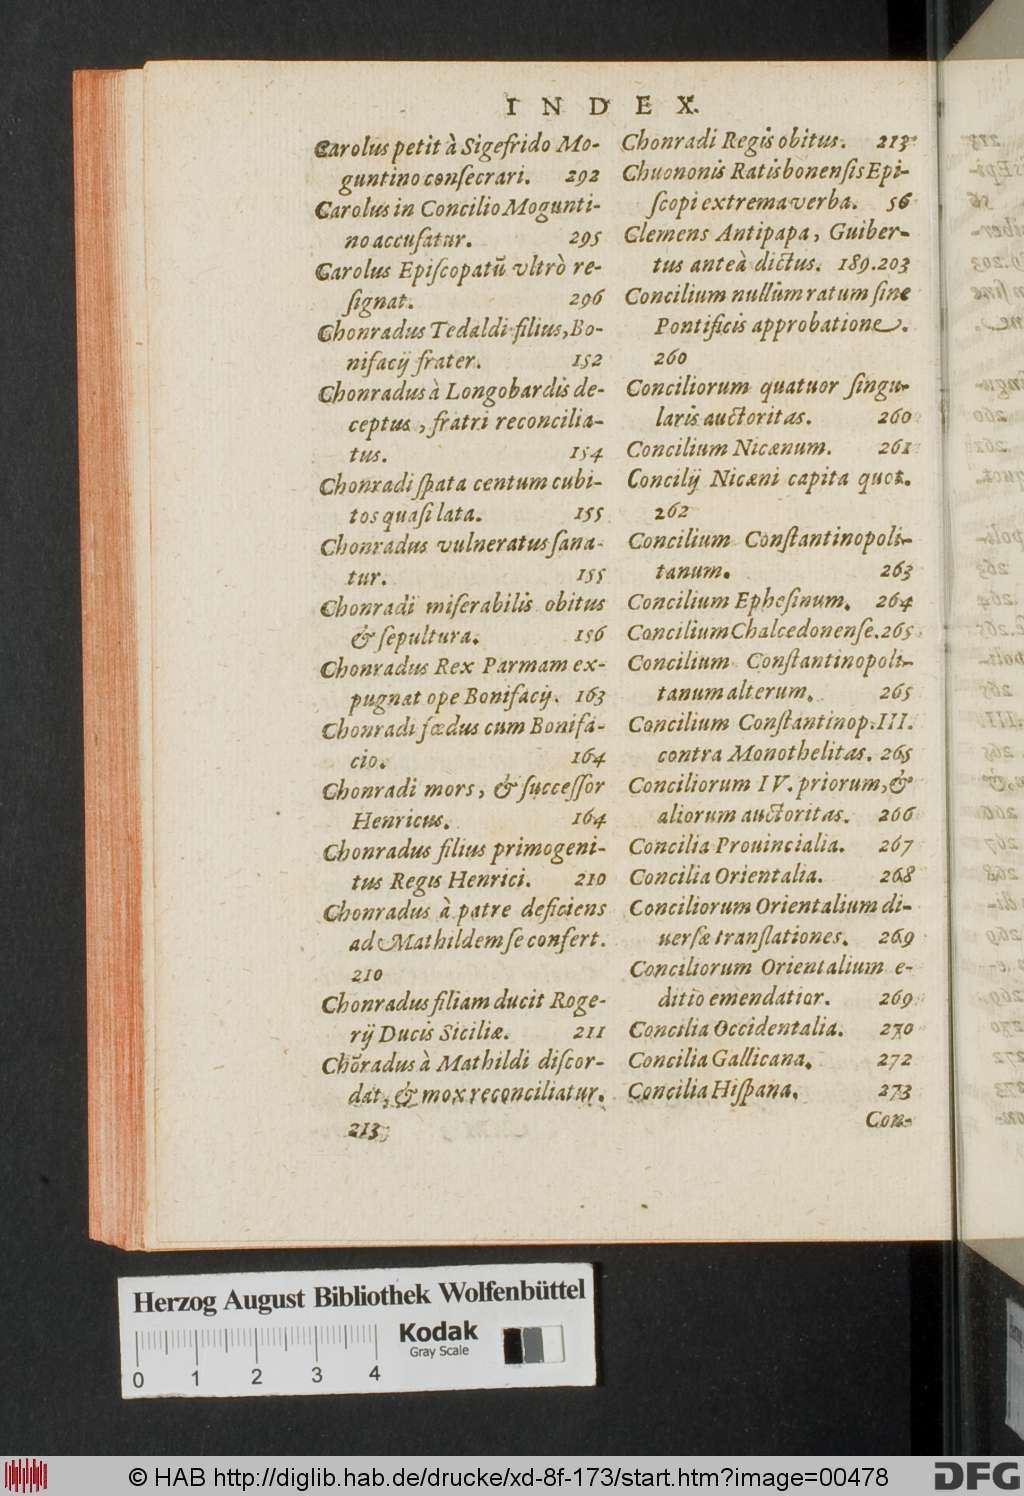 INDEX.
Carolus petit à Sigefrido Mo-
guntino conſecrari. 292
Carolus in Concilio Mogunti-
no accuſatur. 295
Carolus Epiſcopatũ vltrò re-
ſignat. 296
Chonradus Tedaldi filius, Bo-
nifacij frater. 152
Chonradus à Longobardis de-
ceptus, fratri reconcilia-
tus. 154
Chonradi ſpata centum cubi-
tos quaſi lata. 155
Chonradus vulneratus ſana-
tur. 155
Chonradi miſerabilis obitus
& ſepultura. 156
Chonradus Rex Parmam ex-
pugnat ope Bonifacij. 163
Chonradi fœdus cum Bonifa-
cio. 164
Chonradi mors, & ſucceſſor
Henricus. 164
Chonradus filius primogeni-
tus Regis Henrici. 210
Chonradus à patre deficiens
ad Mathildem ſe confert.
210
Chonradus filiam ducit Roge-
rij Ducis Siciliæ. 211
Chõradus à Mathildi diſcor-
dat, & mox reconciliatur.
213
Chonradi Regis obitus. 213
Chuononis Ratisbonenſis Epi-
ſcopi extrema verba. 56
Clemens Antipapa, Guiber-
tus anteà dictus. 189.203
Concilium nullùm ratum ſine
Pontificis approbatione.
260
Conciliorum quatuor ſingu-
laris auctoritas. 260
Concilium Nicænum. 261
Concilij Nicæni capita quot.
262
Concilium Conſtantinopoli-
tanum. 263
Concilium Epheſinum. 264
Concilium Chalcedonenſe. 265
Concilium Conſtantinopoli-
tanum alterum. 265
Concilium Conſtantinop. III.
contra Monothelitas. 265
Conciliorum IV. priorum, &
aliorum auctoritas. 266
Concilia Prouincialia. 267
Concilia Orientalia. 268
Conciliorum Orientalium di-
uerſæ tranſlationes. 269
Conciliorum Orientalium e-
ditio emendatior. 269
Concilia Occidentalia. 270
Concilia Gallicana. 272
Concilia Hiſpana. 273
Con-
Herzog August Bibliothek Wolfenbüttel
Kodak
Gray Scale
0 1 2 3 4
© HAB http://diglib.hab.de/drucke/xd-8f-173/start.htm?image=00478
DFG